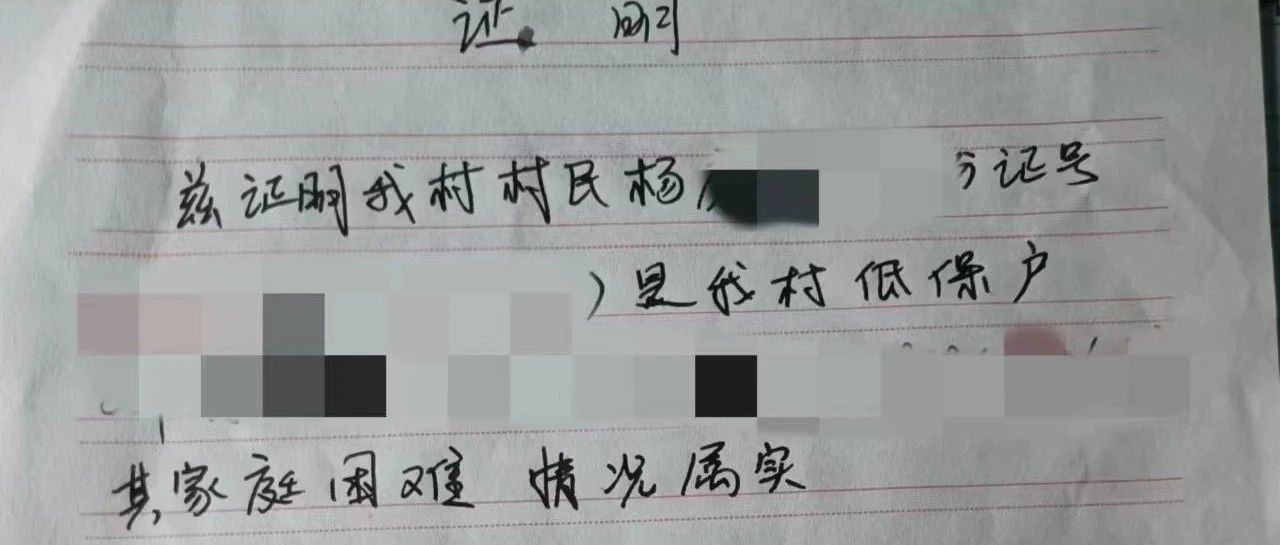 证明
兹证明我村村民杨 证号
）是我村低保户
其家庭困难情况属实